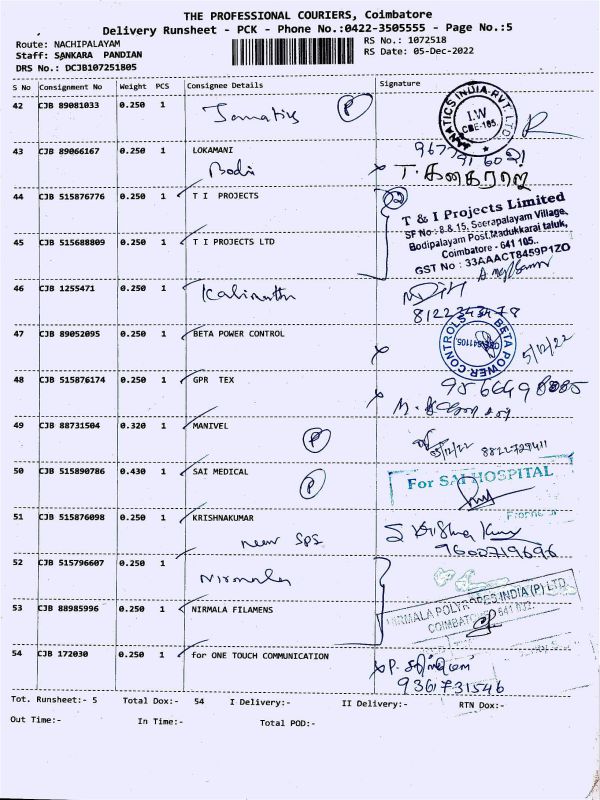 THE PROFESSIONAL COURIERS, Coimbatore
Delivery Runsheet - PCK - Phone No.:0422-3505555 - Page No.:5
Route: NACHIPALAYAM
RS No.: 1072518
Staff: SANKARA PANDIAN
RS Date: 05-Dec-2022
DRS No.: DCJB107251805
S No Consignment No Weight PCS Consignee Details Signature
42 CJB 89081033 0.250 1 P
JANATICS INDIA PVT. LTD.
I.W
CBE-105.
43 CJB 89066167 0.250 1 LOKAMANI
T. கனகராஜ்
44 CJB 515876776 0.250 1 T I PROJECTS 2
45 CJB 515688809 0.250 1 T I PROJECTS LTD
T & I Projects Limited
SF No.:8.8.15, Seerapalayam Village,
Bodipalayam Post, Madukkarai taluk,
Coimbatore - 641 105..
GST No : 33AAACT8459P1ZO
46 CJB 1255471 0.250 1
8122343478
47 CJB 89052095 0.250 1 BETA POWER CONTROL
BETA POWER CONTROLS
5/12/22
48 CJB 515876174 0.250 1 GPR TEX
49 CJB 88731504 0.320 1 MANIVEL P
05/12/22
50 CJB 515890786 0.430 1 SAI MEDICAL P
For SAI HOSPITAL
51 CJB 515876098 0.250 1 KRISHNAKUMAR
near SPS
S Krishna Kumar
9600719696
52 CJB 515796607 0.250 1
53 CJB 88985996 0.250 1 NIRMALA FILAMENS
NIRMALA POLYROPES INDIA (P) LTD
COIMBATORE
54 CJB 172030 0.250 1 for ONE TOUCH COMMUNICATION
9361731546
Tot. Runsheet:- 5 Total Dox:- 54 I Delivery:- II Delivery:- RTN Dox:-
Out Time:- In Time:- Total POD:-